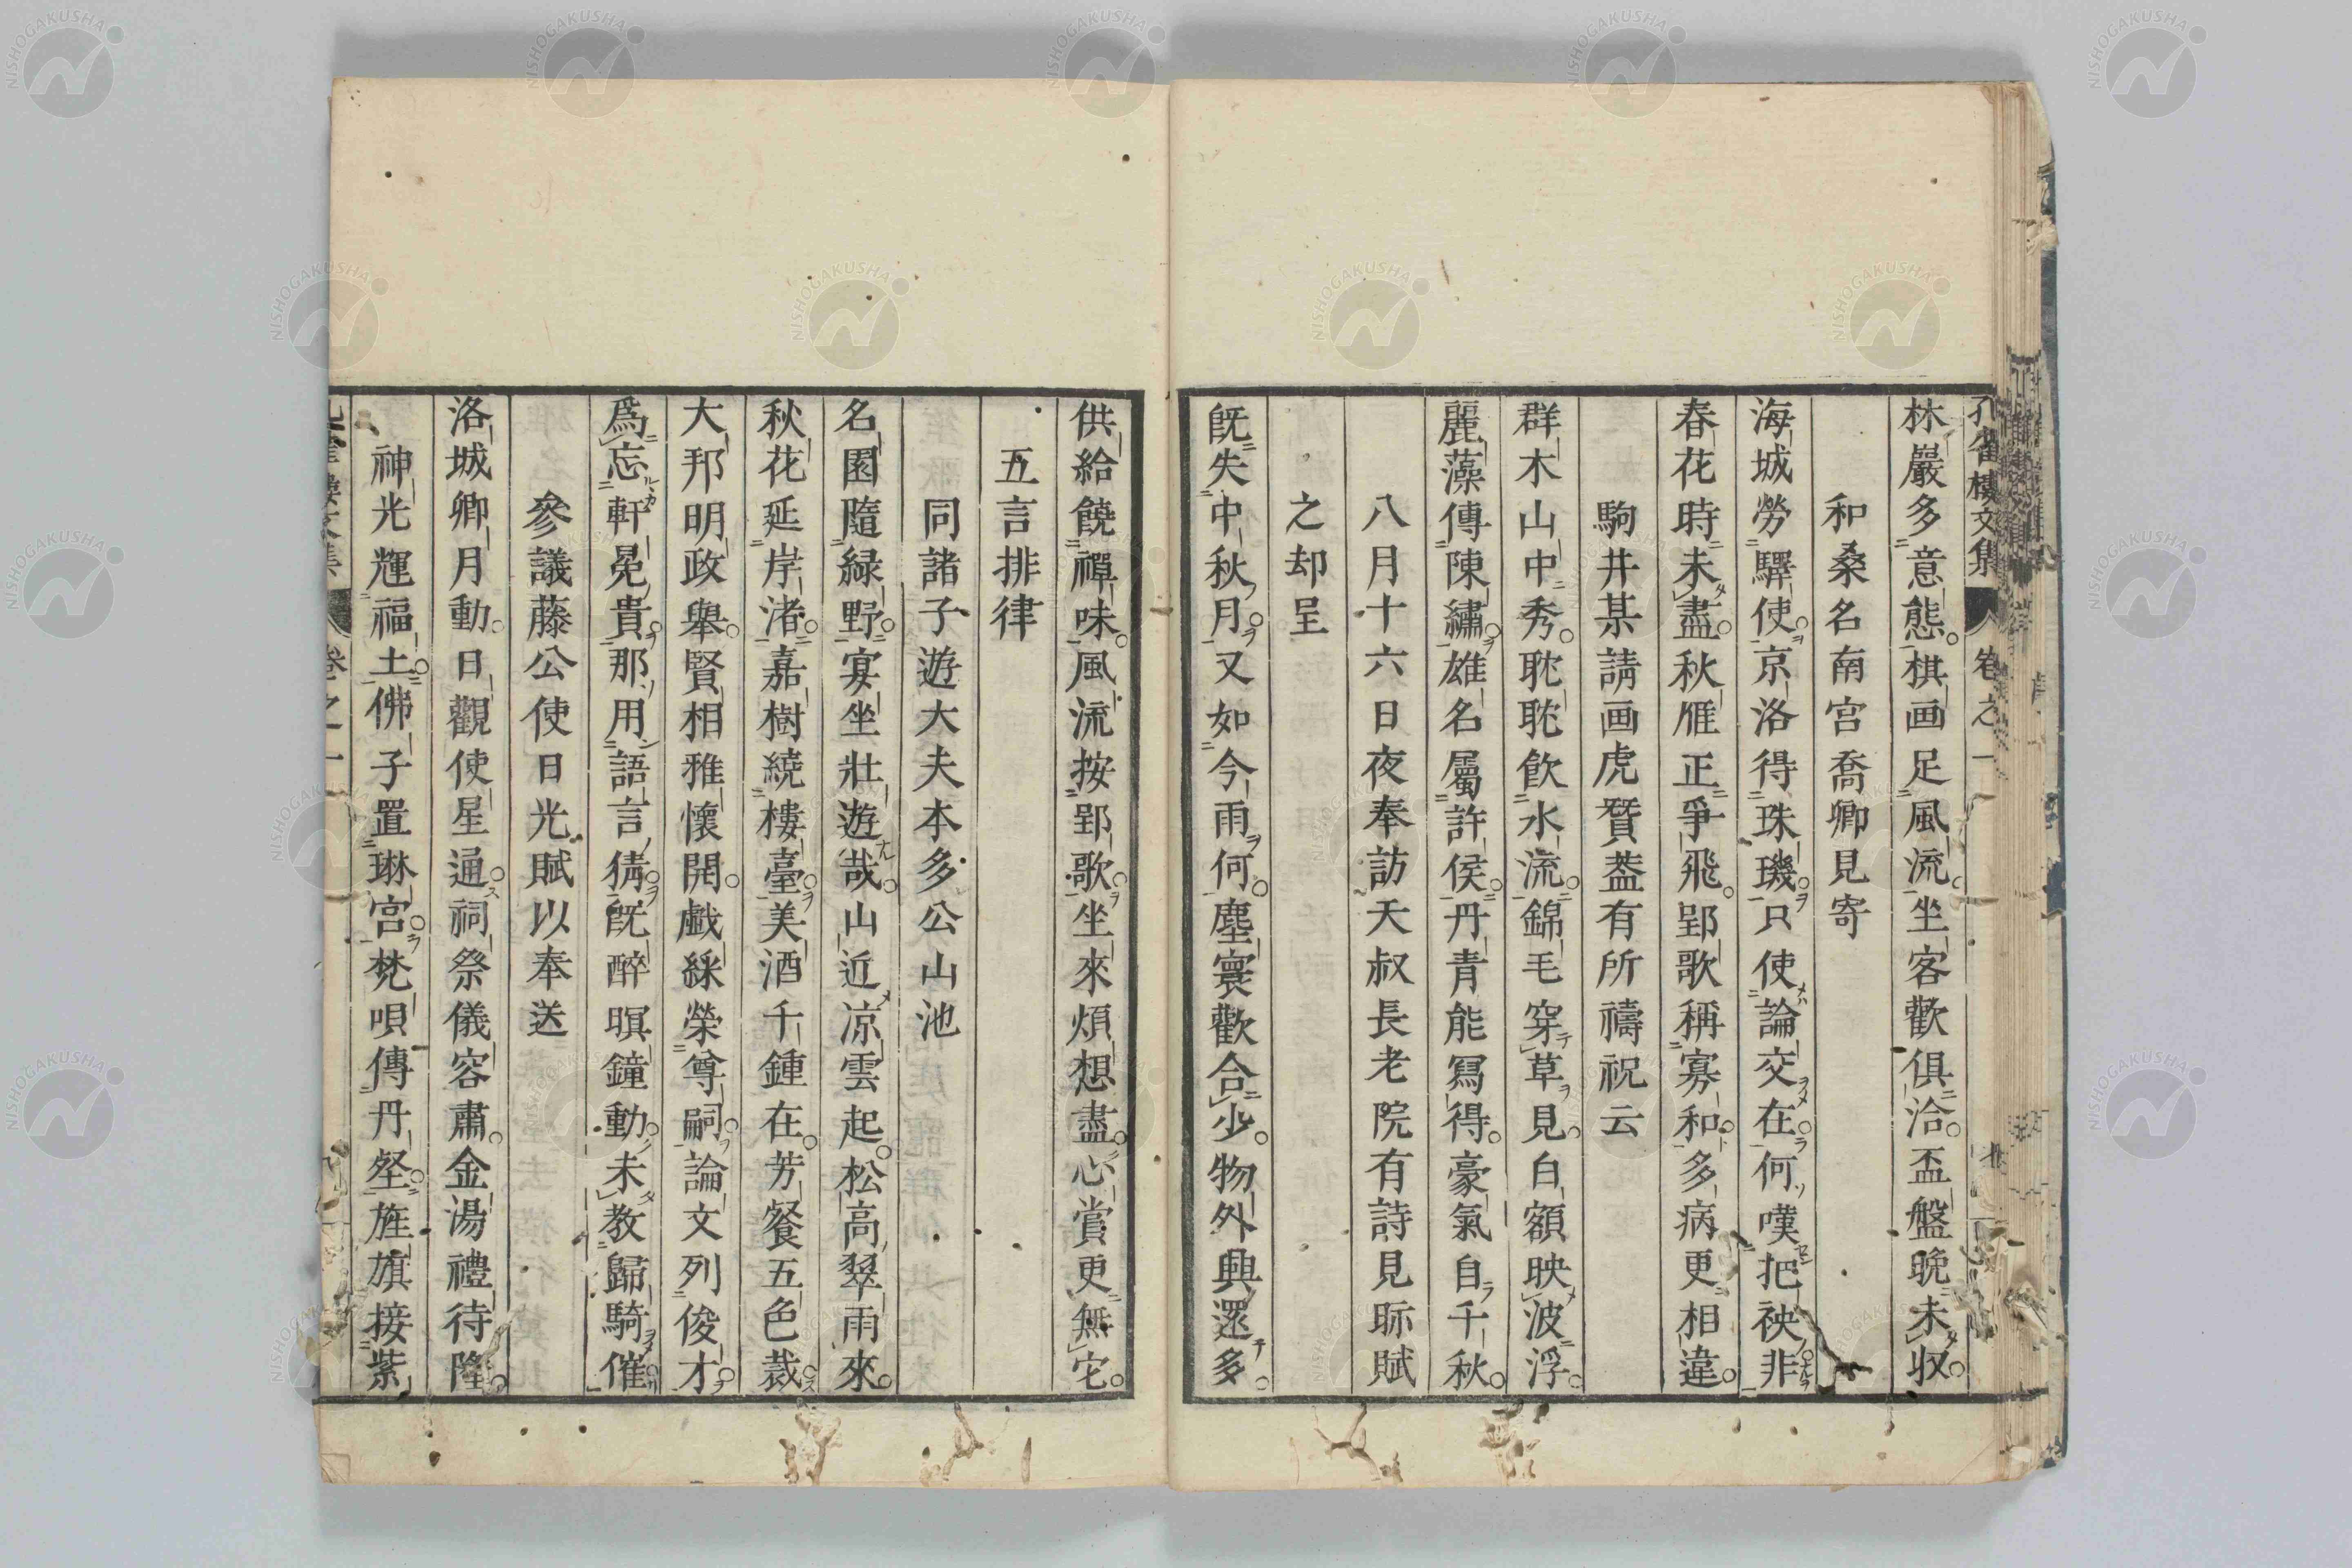 孔雀樓文集 卷之一
林巖多意態棋画足風流坐客歡俱洽盃盤晩未収
和桑名南宮喬卿見寄
海城勞驛使京洛得珠璣只使論交在何嘆把袂非
春花時未盡秋雁正爭飛郢歌稱寡和多病更相違
駒井某請画虎贊葢有所禱祝云
群木山中秀耽耽飲水流錦毛穿草見白額映波浮
麗藻傳陳繡雄名屬許侯丹青能寫得豪氣自千秋
八月十六日夜奉訪天叔長老院有詩見眎賦
之却呈
旣失中秋月又如今雨何塵寰歡合少物外興還多
供給饒禪味風流按郢歌坐來煩想盡心賞更無它
五言排律
同諸子遊大夫本多公山池
名園隨緑野宴坐壯遊哉山近凉雲起松高翠雨來
秋花延岸渚嘉樹繞樓臺美酒千鍾在芳餐五色裁
大邦明政舉賢相雅懷開戲綵榮尊嗣論文列俊才
爲忘軒冕貴那用語言猜旣醉暝鐘動未教歸騎催
參議藤公使日光賦以奉送
洛城卿月動日觀使星通祠祭儀容肅金湯禮待隆
神光輝福土佛子置琳宮梵唄傳丹壑旌旗接紫
卷之一
NISHOGAKUSHA